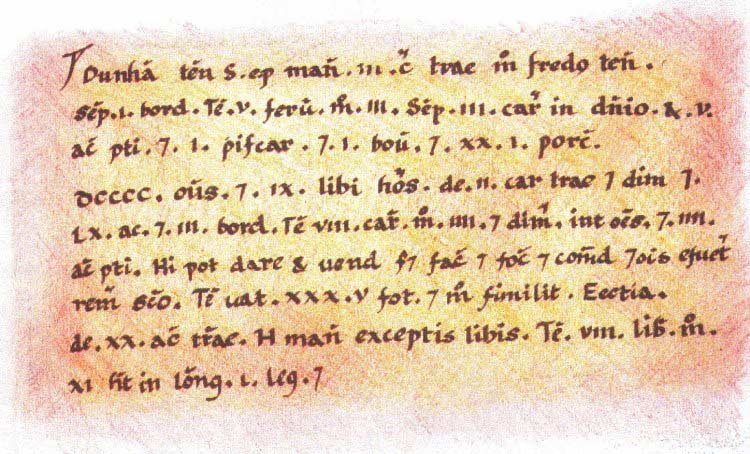 Dunhā teñ S. ep mañ. III. c̃ trae m̊ fredo teñ.
Sẽp. I. bord. Tẽ. V. ferū. m̊. III. Sẽp. III. car̃ in dñio. & . V.
ac̃ pti. 7. I. piscar. 7. I. boū. 7. XX. I. porc̃.
DCCCC. oūs. 7. IX. libi hõs. de. II. car trae 7 dim 7.
LX. ac. 7. III. bord. Tẽ VIII. car̃. m̊. IIII. 7 dim̃. int oẽs. 7. IIII.
ac̃ pti. Hi pot dare & uend f7 fac̃ 7 foc̃ 7 com̃d 7ois
rem̃ Sc̃o. Tẽ uat. XXX. V fot. 7 m̊ similit. Ecctia.
de. XX. ac̃ tr̃ae. H mañ exceptis libis. Tẽ. VIII. lib̃. m̊.
XI ht in lõng. I. leg. 7